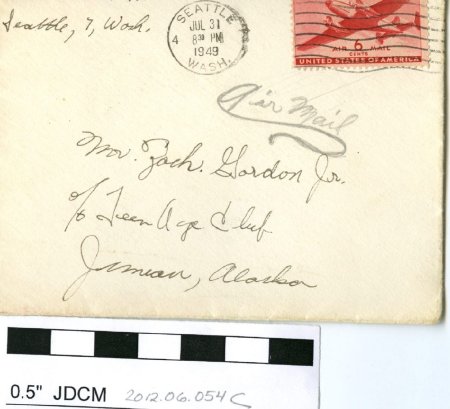 Seattle, 7, Wash.
SEATTLE
JUL 31
4 8:30 PM
1949
WASH.
AIR 6 MAIL
CENTS
UNITED STATES OF AMERICA
Air Mail
Mr. Zach. Gordon Jr.
c/o Teen Age Club
Juneau, Alaska
0.5" JDCM 2012.06.054c